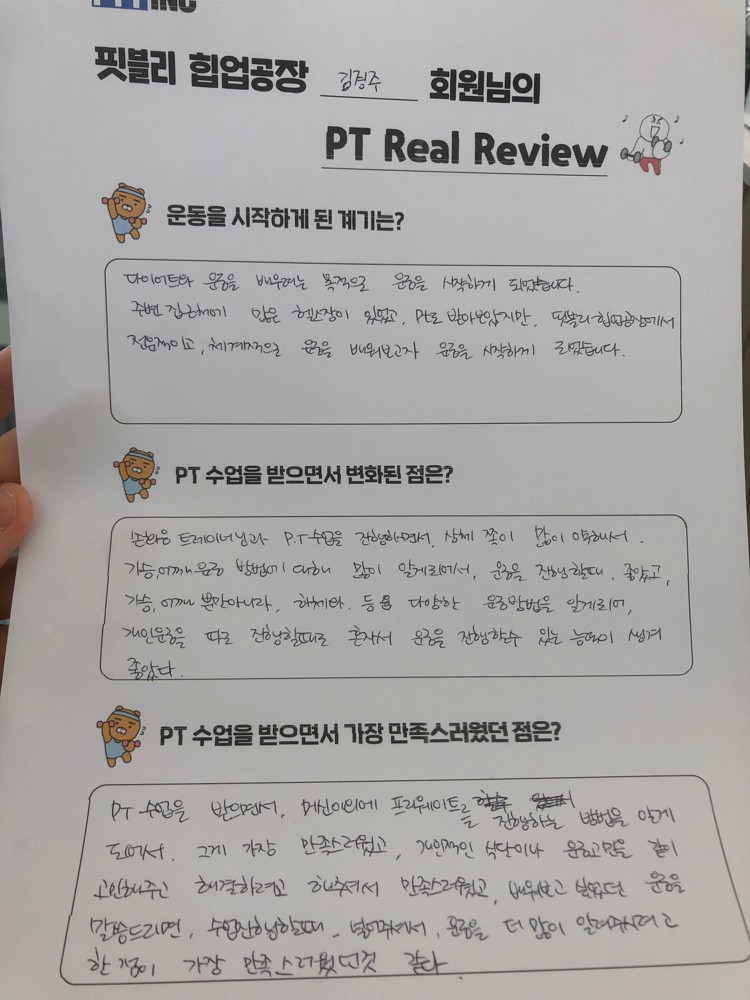 INC
핏블리 힙업공장 김경주 회원님의
PT Real Review
운동을 시작하게 된 계기는?
다이어트와 운동을 배우려는 목적으로 운동을 시작하게 되었습니다.
주변 집근처에 많은 헬스장이 있었고, PT도 받아보았지만, 핏블리 힙업공장에서
전문적이고, 체계적으로 운동을 배워보고자 운동을 시작하게 되었습니다.
PT 수업을 받으면서 변화된 점은?
트레이너님과 P.T 수업을 진행하면서, 상체 쪽이 많이 약해서.
가슴, 어깨 운동 방법에 대해 많이 알게되어서, 운동을 진행할때. 좋았고,
가슴, 어깨 뿐만아니라, 하체와. 등 등 다양한 운동방법을 알게되어,
개인운동을 따로 진행할때도 혼자서 운동을 진행할수 있는 능력이 생겨
좋았다.
PT 수업을 받으면서 가장 만족스러웠던 점은?
PT 수업을 받으면서, 머신이외에 프리웨이트를 진행하는 방법을 알게
되어서. 그게 가장 만족스러웠고, 개인적인 식단이나 운동고민을 같이
고민해주고 해결하려고 해주셔서 만족스러웠고, 배워보고 싶었던 운동을
말씀드리면, 수업진행할때, 넣어주셔서, 운동을 더 많이 알려주시려고
한 점이 가장 만족스러웠던것 같다.